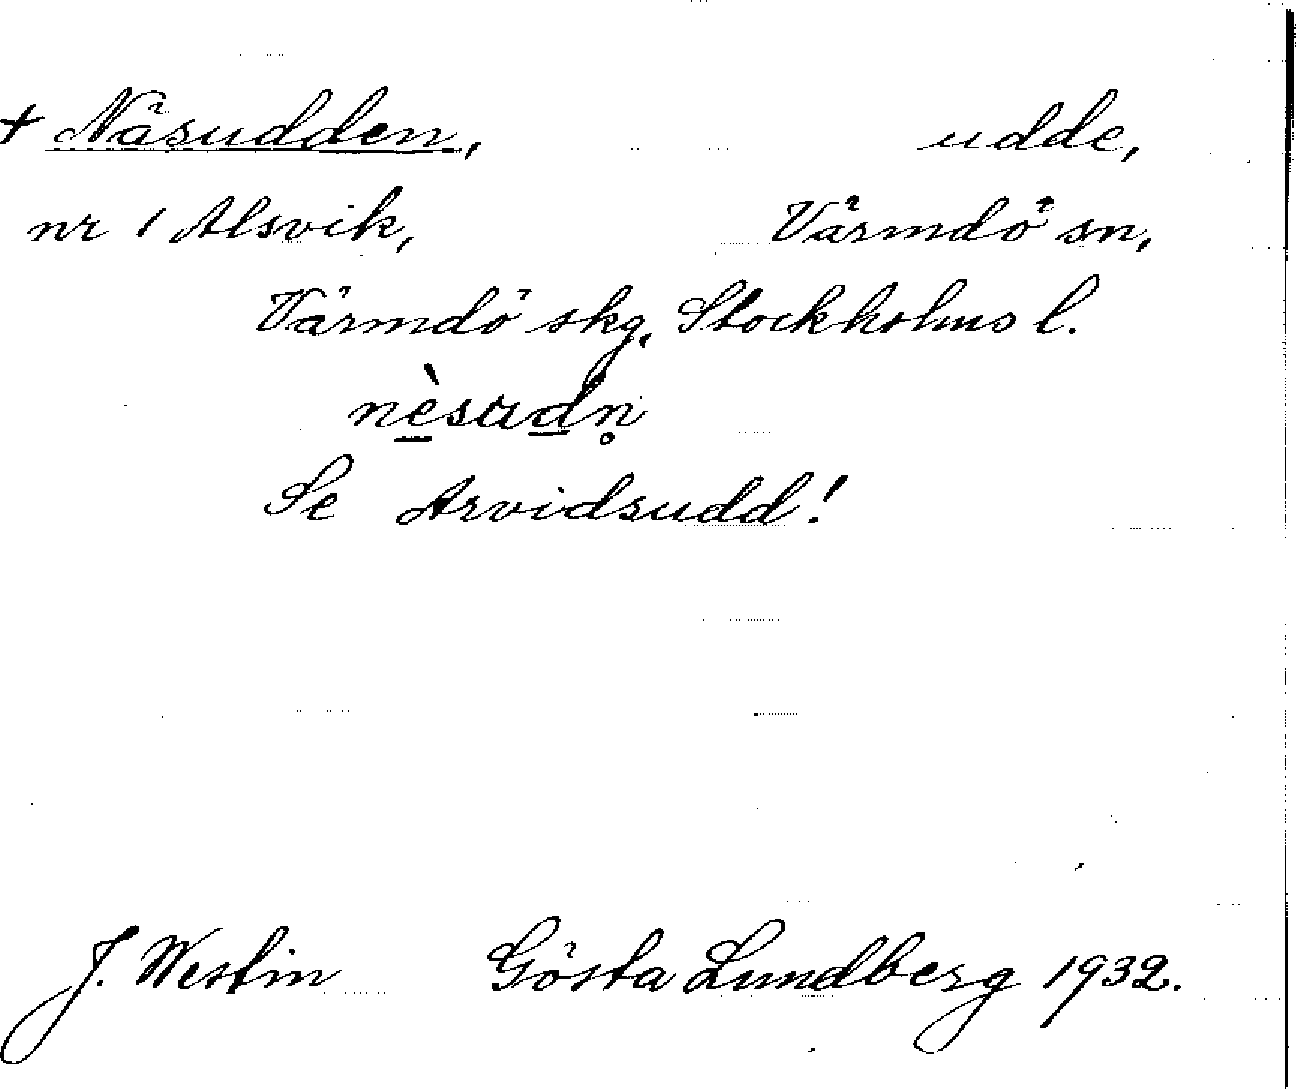 + Näsudden, udde,
nr 1 Alsvik, Värmdö sn,
Värmdö skg, Stockholms l.
nè̱suḏn̥
Se Arvidsudd!
J. Westin Gösta Lundberg 1932.